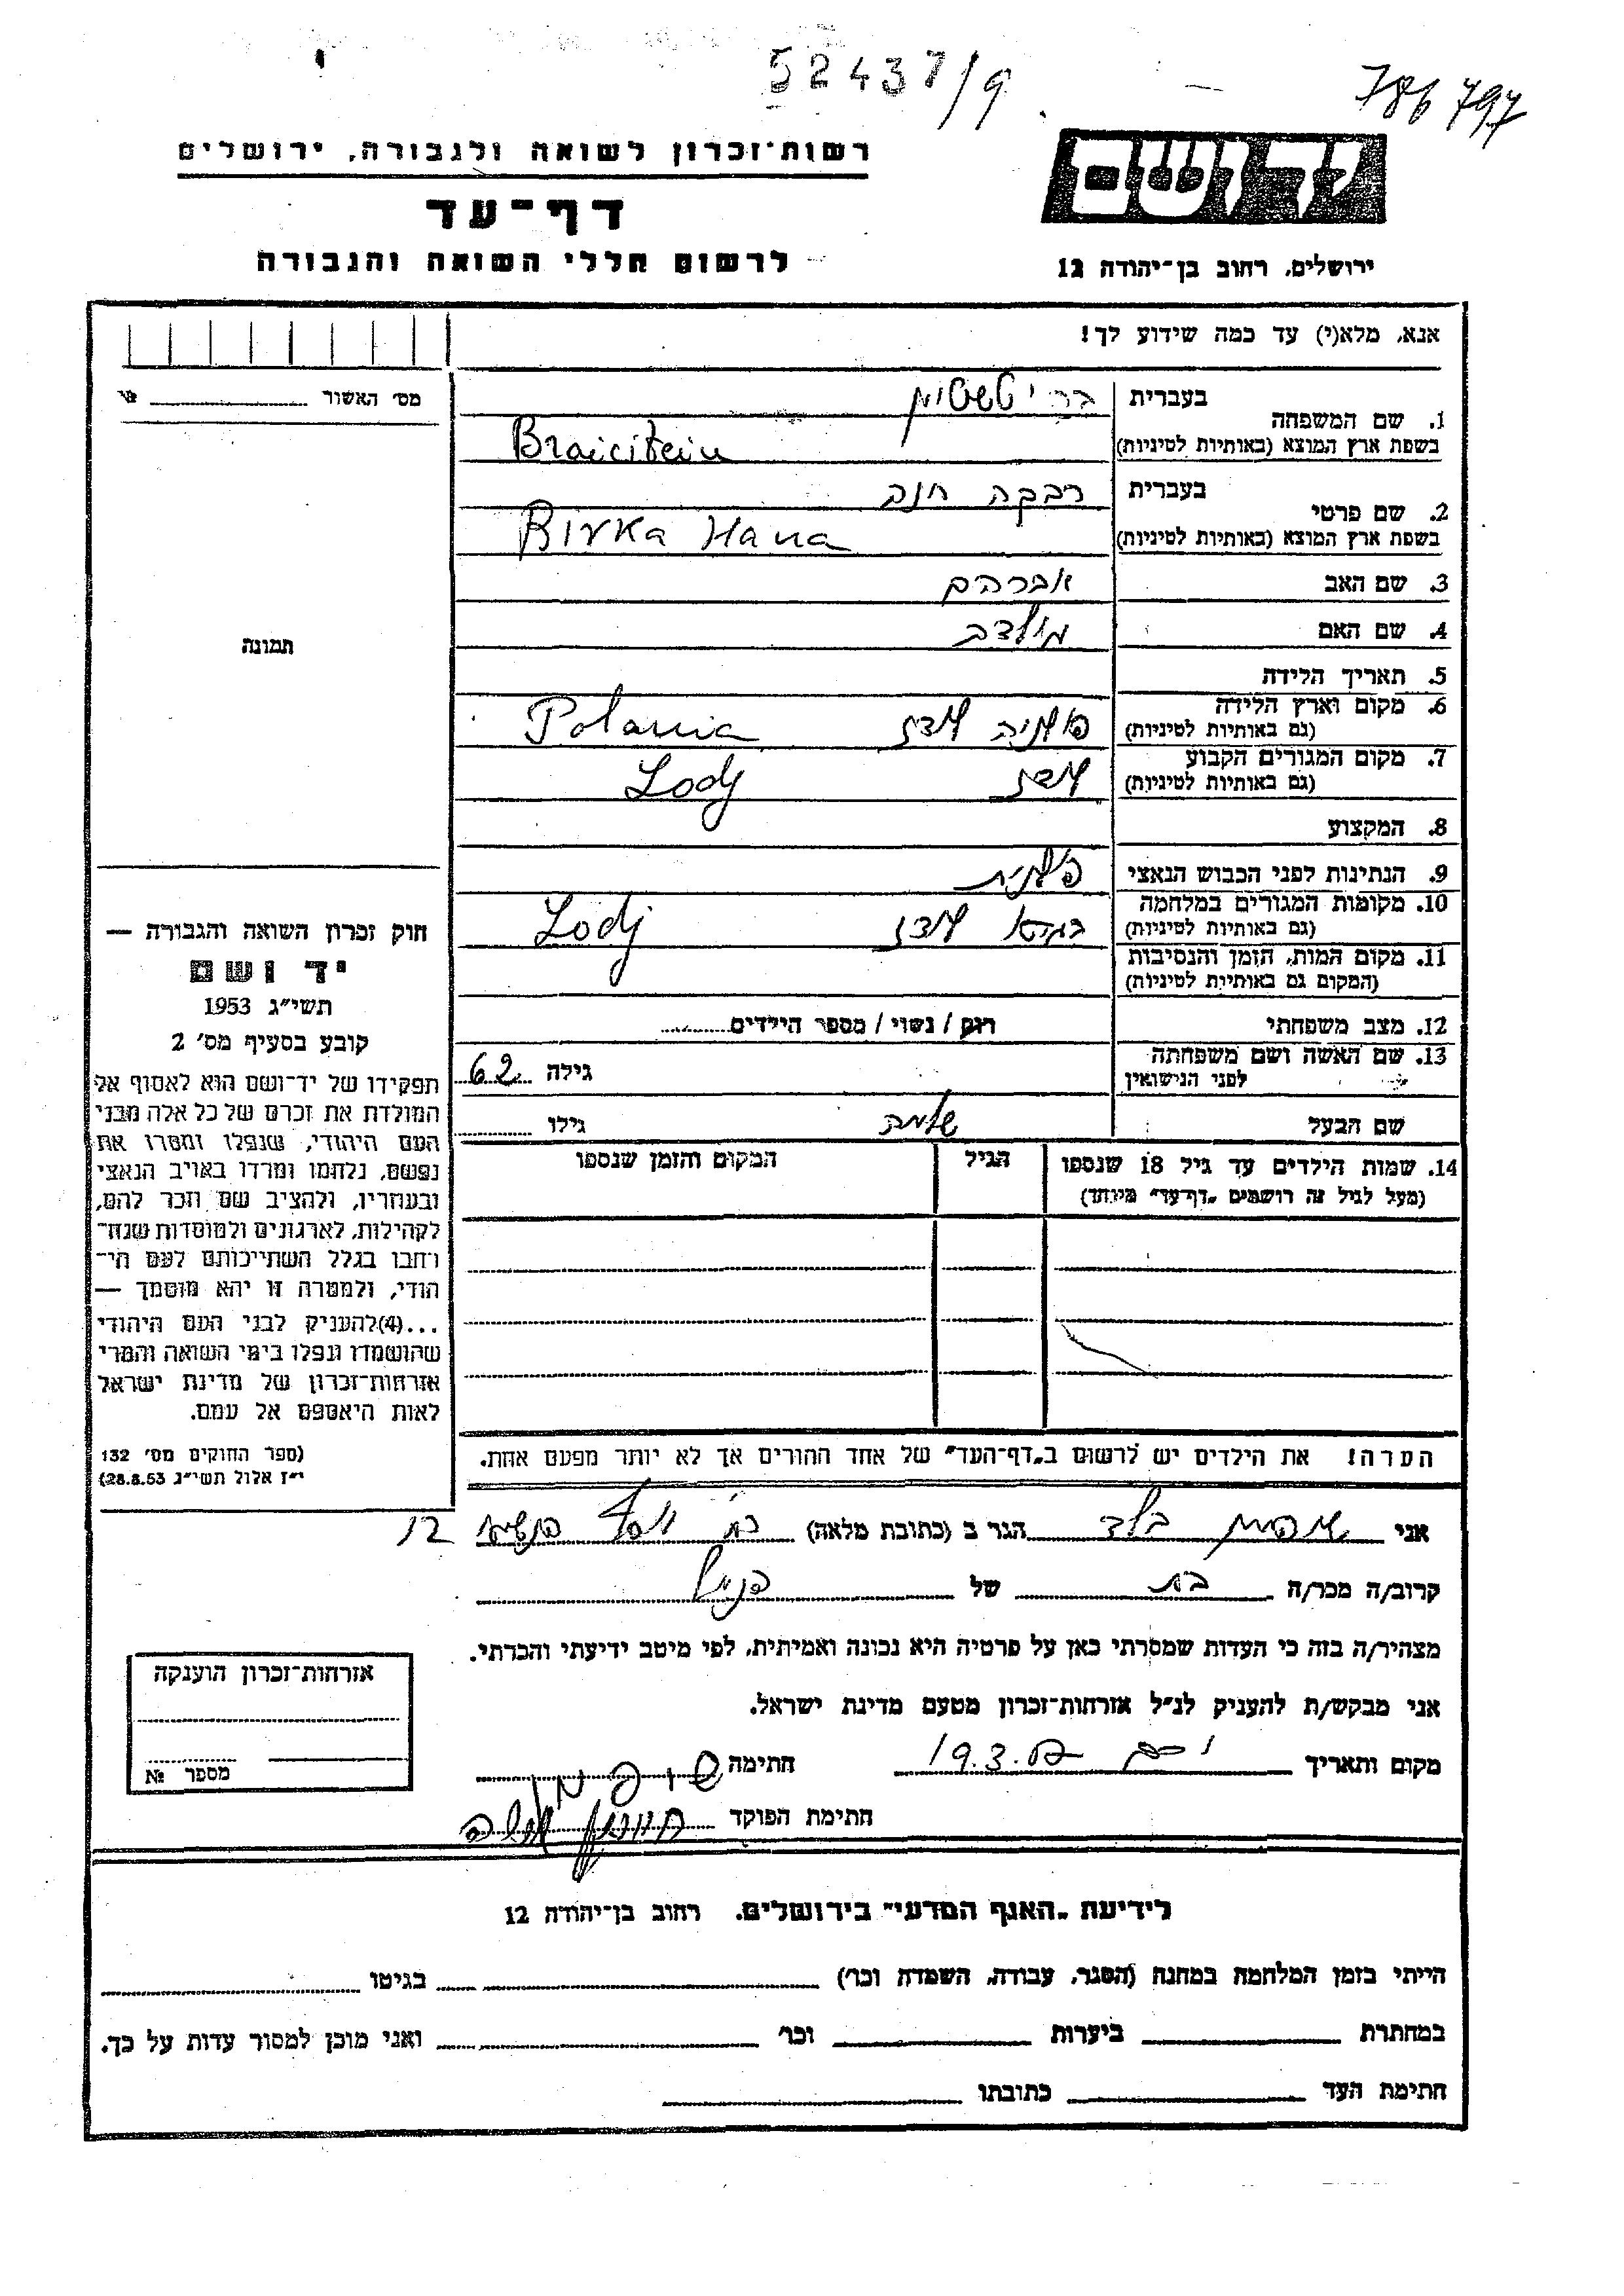 52437/9
786797
רשות־זכרון לשואה ולגבורה, ירושלים
דף־עד
לרשום חללי השואה והגבורה
יד ושם
ירושלים, רחוב בן־יהודה 12
אנא, מלא(י) עד כמה שידוע לך!
מס׳ האשור № 
1. שם המשפחה
בעברית
בשפת ארץ המוצא (באותיות לטיניות)
Braicitein
2. שם פרטי
בעברית רבקה חנה
בשפת ארץ המוצא (באותיות לטיניות) Rivka Hana
3. שם האב אברהם
4. שם האם
5. תאריך הלידה
6. מקום וארץ הלידה
(גם באותיות לטיניות) פולניה לודז Polania
7. מקום המגורים הקבוע
(גם באותיות לטיניות) לודז Lodj
8. המקצוע
9. הנתינות לפני הכבוש הנאצי פולנית
10. מקומות המגורים במלחמה
(גם באותיות לטיניות) לודז Lodj
11. מקום המות, הזמן והנסיבות
(המקום גם באותיות לטיניות)
12. מצב משפחתי רוק / נשוי / מספר הילדים
13. שם האשה ושם משפחתה
לפני הנישואין גילה 62
שם הבעל שלמה גילו
14. שמות הילדים עד גיל 18 שנספו
(מעל לגיל זה רושמים „דף־עד״ מיוחד)
הגיל
המקום והזמן שנספו
הערה! את הילדים יש לרשום ב„דף־העד״ של אחד ההורים אך לא יותר מפעם אחת.
תמונה
חוק זכרון השואה והגבורה —
יד ושם
תשי״ג 1953
קובע בסעיף מס׳ 2
תפקידו של יד־ושם הוא לאסוף אל
המולדת את זכרם של כל אלה מבני
העם היהודי, שנפלו ומסרו את
נפשם, נלחמו ומרדו באויב הנאצי
ובעוזריו, ולהציב שם וזכר להם,
לקהילות, לארגונים ולמוסדות שנח־
רבו בגלל השתייכותם לעם הי־
הודי, ולמטרה זו יהא מוסמך —
...(4)להעניק לבני העם היהודי
שהושמדו ונפלו בימי השואה והמרי
אזרחות־זכרון של מדינת ישראל
לאות היאספם אל עמם.
(ספר החוקים מס׳ 132
י״ז אלול תשי״ג 28.8.53)
אני הגר ב (כתובת מלאה) 12
קרוב/ה מכר/ה בת של
מצהיר/ה בזה כי העדות שמסרתי כאן על פרטיה היא נכונה ואמיתית, לפי מיטב ידיעתי והכרתי.
אני מבקש/ת להעניק לנ״ל אזרחות־זכרון מטעם מדינת ישראל.
מקום ותאריך חתימה
חתימת הפוקד
אזרחות־זכרון הוענקה
מספר №
לידיעת „האגף המדעי״ בירושלים, רחוב בן־יהודה 12
הייתי בזמן המלחמה במחנה (הסגר, עבודה, השמדה וכו׳) בגיטו
במחתרת ביערות וכו׳ ואני מוכן למסור עדות על כך.
חתימת העד כתובתו